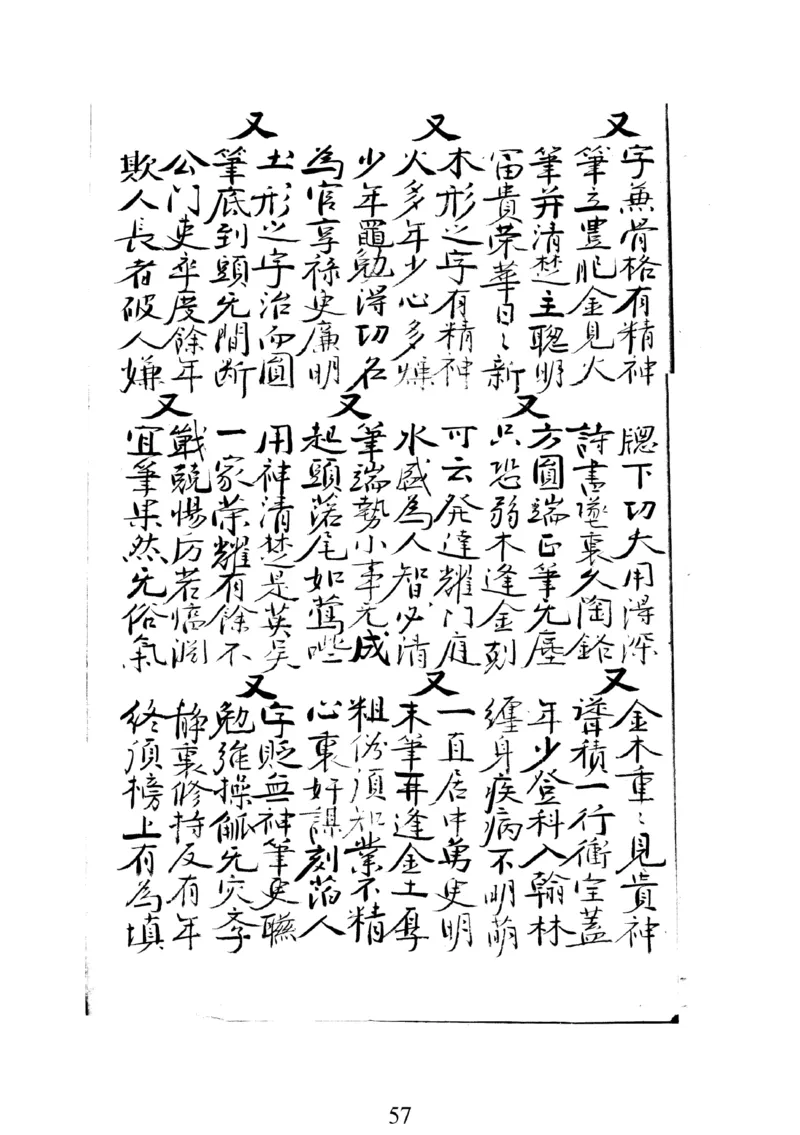 又
字兼骨格有精神
筆立豊肥金見火
筆并清楚主聰明
富貴荣華日〻新
又
木形之字有精神
火多年少心多燥
少年黽勉得功名
為官享禄史廉明
又
土形之字治而圓
筆底到頭无間断
公门吏卒度餘年
欺人長者破人嫌
牕下功夫用得深
詩書墜裏久陶鎔
又
方圓端正筆无塵
只恐弱木逢金剋
可云発達耀门庭
水盛為人智必清
又
筆端勢小事无成
起頭落尾如鶯
用神清楚是英吴
一家荣耀有餘不
又
戰兢惕厉若渕
宜筆果然无俗氣
又
金木重〻見貴神
積一行衝宝蓋
年少登科入翰林
纏身疾病不明萠
又
一直居中萬史明
末筆再逢金土厚
粗俗須知業不精
心裏奸謀刻落人
又
字贬無神筆更聮
勉強操觚无灾
静裏修持反有年
終須榜上有為填
57